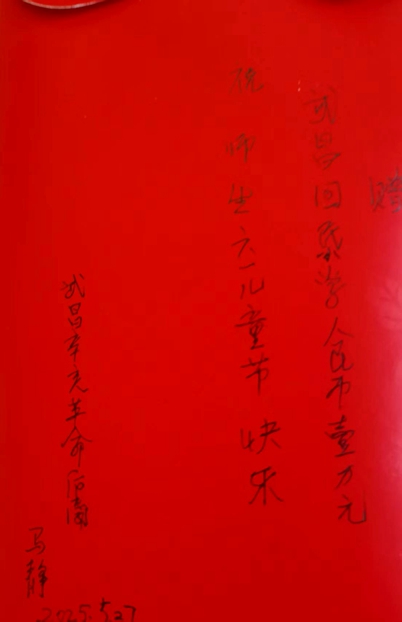 赠
武昌回民小学人民币壹万元
祝师生六一儿童节快乐
武昌辛亥革命后裔
马静
2025.5.27